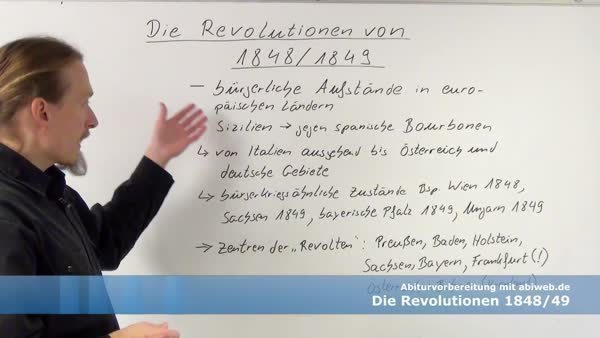 Die Revolutionen von
1848/1849
— bürgerliche Aufstände in euro-
päischen Ländern
Sizilien → gegen spanische Bourbonen
↳ von Italien ausgehend bis Österreich und
deutsche Gebiete
↳ bürgerkriegsähnliche Zustände Bsp. Wien 1848,
Sachsen 1849, bayerische Pfalz 1849, Ungarn 1849
→ Zentren der „Revolten": Preußen, Baden, Holstein,
Sachsen, Bayern, Frankfurt (!)
Abiturvorbereitung mit abiweb.de
Die Revolutionen 1848/49